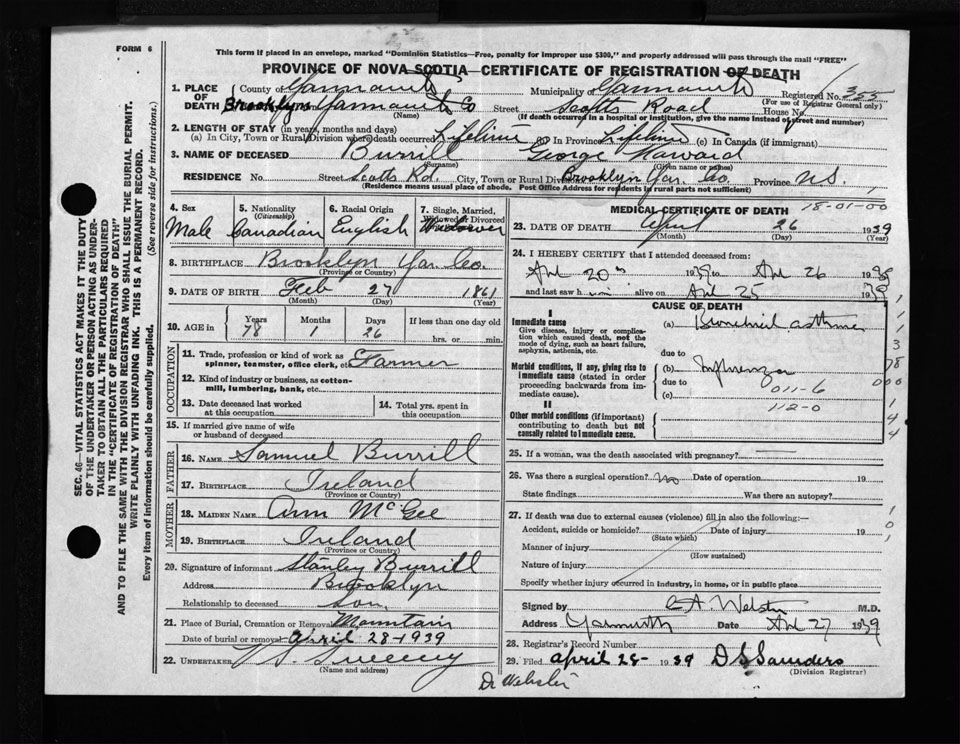 FORM 6
This form if placed in an envelope, marked "Dominion Statistics—Free, penalty for improper use $300," and properly addressed will pass through the mail "FREE"
PROVINCE OF NOVA SCOTIA—CERTIFICATE OF REGISTRATION OF DEATH
SEC. 46—VITAL STATISTICS ACT MAKES IT THE DUTY
OF THE UNDERTAKER OR PERSON ACTING AS UNDER-
TAKER TO OBTAIN ALL THE PARTICULARS REQUIRED
IN THE "CERTIFICATE OF REGISTRATION OF DEATH"
AND TO FILE THE SAME WITH THE DIVISION REGISTRAR WHO SHALL ISSUE THE BURIAL PERMIT.
WRITE PLAINLY WITH UNFADING INK. THIS IS A PERMANENT RECORD.
Every item of information should be carefully supplied. (See reverse side for instructions.)
1. PLACE OF DEATH County of Yarmouth Municipality of Yarmouth Registered No. 355
(For use of Registrar General only)
Brooklyn Yarmouth Co Street Scotts Road House No.
(Name) (If death occurred in a hospital or institution, give the name instead of street and number)
2. LENGTH OF STAY (in years, months and days)
(a) In City, Town or Rural Division where death occurred Lifetime (b) In Province Lifetime (c) In Canada (if immigrant)
3. NAME OF DECEASED Burrill George Howard
(Surname) (Given name or names)
RESIDENCE No. Street Scotts Rd. City, Town or Rural Division Brooklyn Yar. Co. Province N.S.
(Residence means usual place of abode. Post Office Address for residents in rural parts not sufficient)
4. Sex Male
5. Nationality (Citizenship) Canadian
6. Racial Origin English
7. Single, Married, Widowed or Divorced Widower
8. BIRTHPLACE Brooklyn Yar. Co.
(Province or Country)
9. DATE OF BIRTH Feb 27 1861
(Month) (Day) (Year)
10. AGE in Years Months Days If less than one day old
78 1 26 hrs. or min.
OCCUPATION
11. Trade, profession or kind of work as spinner, teamster, office clerk, etc. Farmer
12. Kind of industry or business, as cotton-mill, lumbering, bank, etc.
13. Date deceased last worked at this occupation
14. Total yrs. spent in this occupation
15. If married give name of wife or husband of deceased
FATHER
16. NAME Samuel Burrill
17. BIRTHPLACE Ireland
(Province or Country)
MOTHER
18. MAIDEN NAME Ann McGee
19. BIRTHPLACE Ireland
(Province or Country)
20. Signature of informant Stanley Burrill
Address Brooklyn
Relationship to deceased Son
21. Place of Burial, Cremation or Removal Mountain
Date of burial or removal April 28-1939
22. UNDERTAKER Sweeny
(Name and address)
Dr Webster
MEDICAL CERTIFICATE OF DEATH 18-01-00
23. DATE OF DEATH April 26 1939
(Month) (Day) (Year)
24. I HEREBY CERTIFY that I attended deceased from:
Apl 20 1939 to Apl 26 1939
and last saw him alive on Apl 25 1939
CAUSE OF DEATH
I
Immediate cause (a) Bronchial asthma
Give disease, injury or complication which caused death, not the mode of dying, such as heart failure, asphyxia, asthenia, etc.
due to
Morbid conditions, if any, giving rise to immediate cause (stated in order proceeding backwards from immediate cause). (b) Influenza
due to 011-6
(c)
112-0
II
Other morbid conditions (if important) contributing to death but not causally related to immediate cause.
25. If a woman, was the death associated with pregnancy?
26. Was there a surgical operation? no Date of operation 19
State findings Was there an autopsy?
27. If death was due to external causes (violence) fill in also the following:—
Accident, suicide or homicide? Date of injury 19
(State which)
Manner of injury
(How sustained)
Nature of injury
Specify whether injury occurred in industry, in home, or in public place
Signed by C A. Webster M.D.
Address Yarmouth Date Apl 27 1939
28. Registrar's Record Number
29. Filed april 28- 1939 D S Saunders
(Division Registrar)